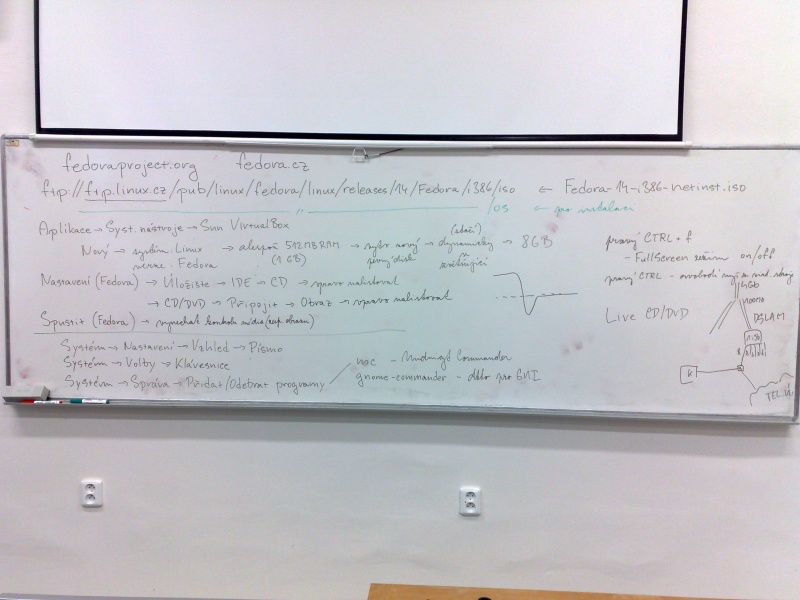 fedoraproject.org fedora.cz
ftp://ftp.linux.cz/pub/linux/fedora/linux/releases/14/Fedora/i386/iso ← Fedora-14-i386-netinst.iso
/os ← pro instalaci
Aplikace → Syst. nástroje → Sun VirtualBox
Nový → systém: Linux → alespoň 512MB RAM → → dynamicky → 8GB
verze: Fedora (1 GB) pevný disk zvětšující
(stačí)
Nastavení (Fedora) → Úložiště → IDE → CD → vpravo nalistovat
→ CD/DVD → Připojit → Obraz → vpravo nalistovat
Spustit (Fedora) →
Systém → Nastavení → Vzhled → Písmo
Systém → Volby → Klávesnice
Systém → Správa → Přidat/Odebrat programy
mc - Midnight Commander
gnome-commander - dtto pro GUI
pravý CTRL + f
- FullScreen režim on/off
pravý CTRL -
Live CD/DVD
4Gb
100Mb
DSLAM
1:50
K
TEL.